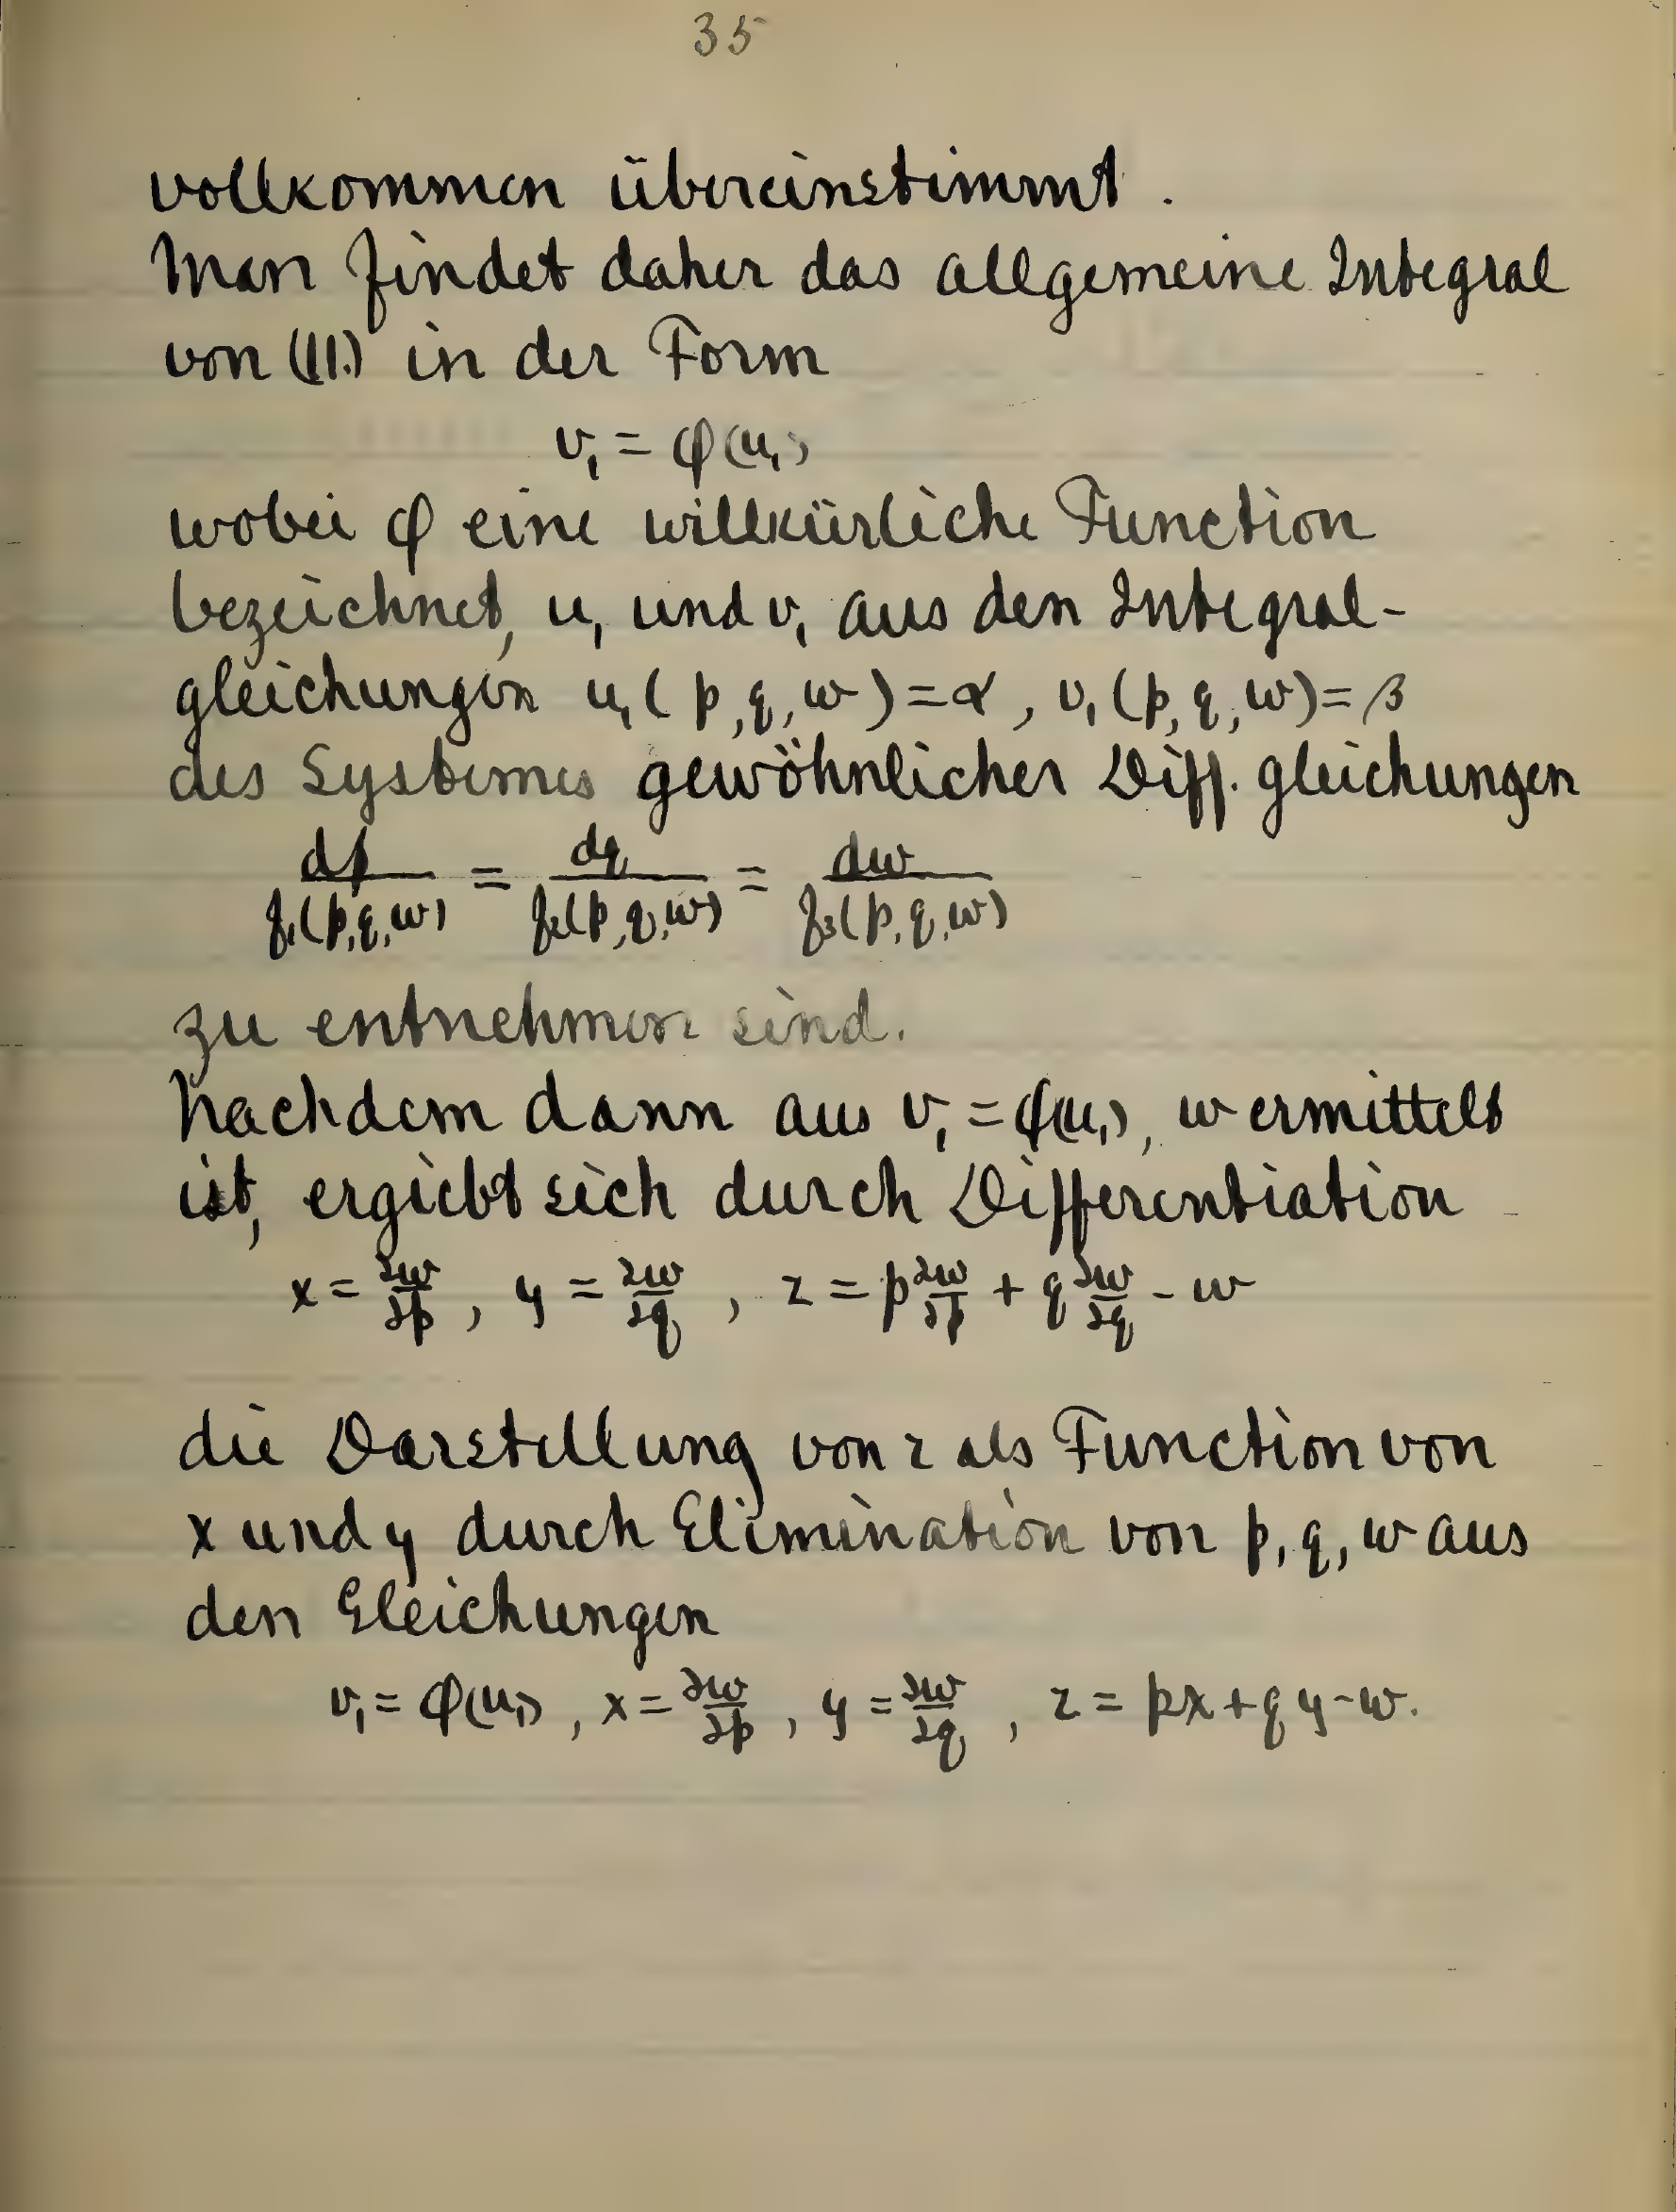 35
vollkommen übereinstimmt.
Man findet daher das allgemeine Integral
von (11.) in der Form
v₁ = φ(u₁)
wobei φ eine willkürliche Function
bezeichnet, u₁ und v₁ aus den Integral-
gleichungen u₁(p,q,w)=α, v₁(p,q,w)=β
des Systemes gewöhnlicher Diff. gleichungen
dp/f₁(p,q,w) = dq/f₂(p,q,w) = dw/f₃(p,q,w)
zu entnehmen sind.
Nachdem dann aus v₁=φ(u₁), w ermittelt
ist, ergiebt sich durch Differentiation
x = ∂w/∂p, y = ∂w/∂q, z = p ∂w/∂p + q ∂w/∂q - w
die Darstellung von z als Function von
x und y durch Elimination von p, q, w aus
den Gleichungen
v₁ = φ(u₁), x = ∂w/∂p, y = ∂w/∂q, z = px + qy - w.